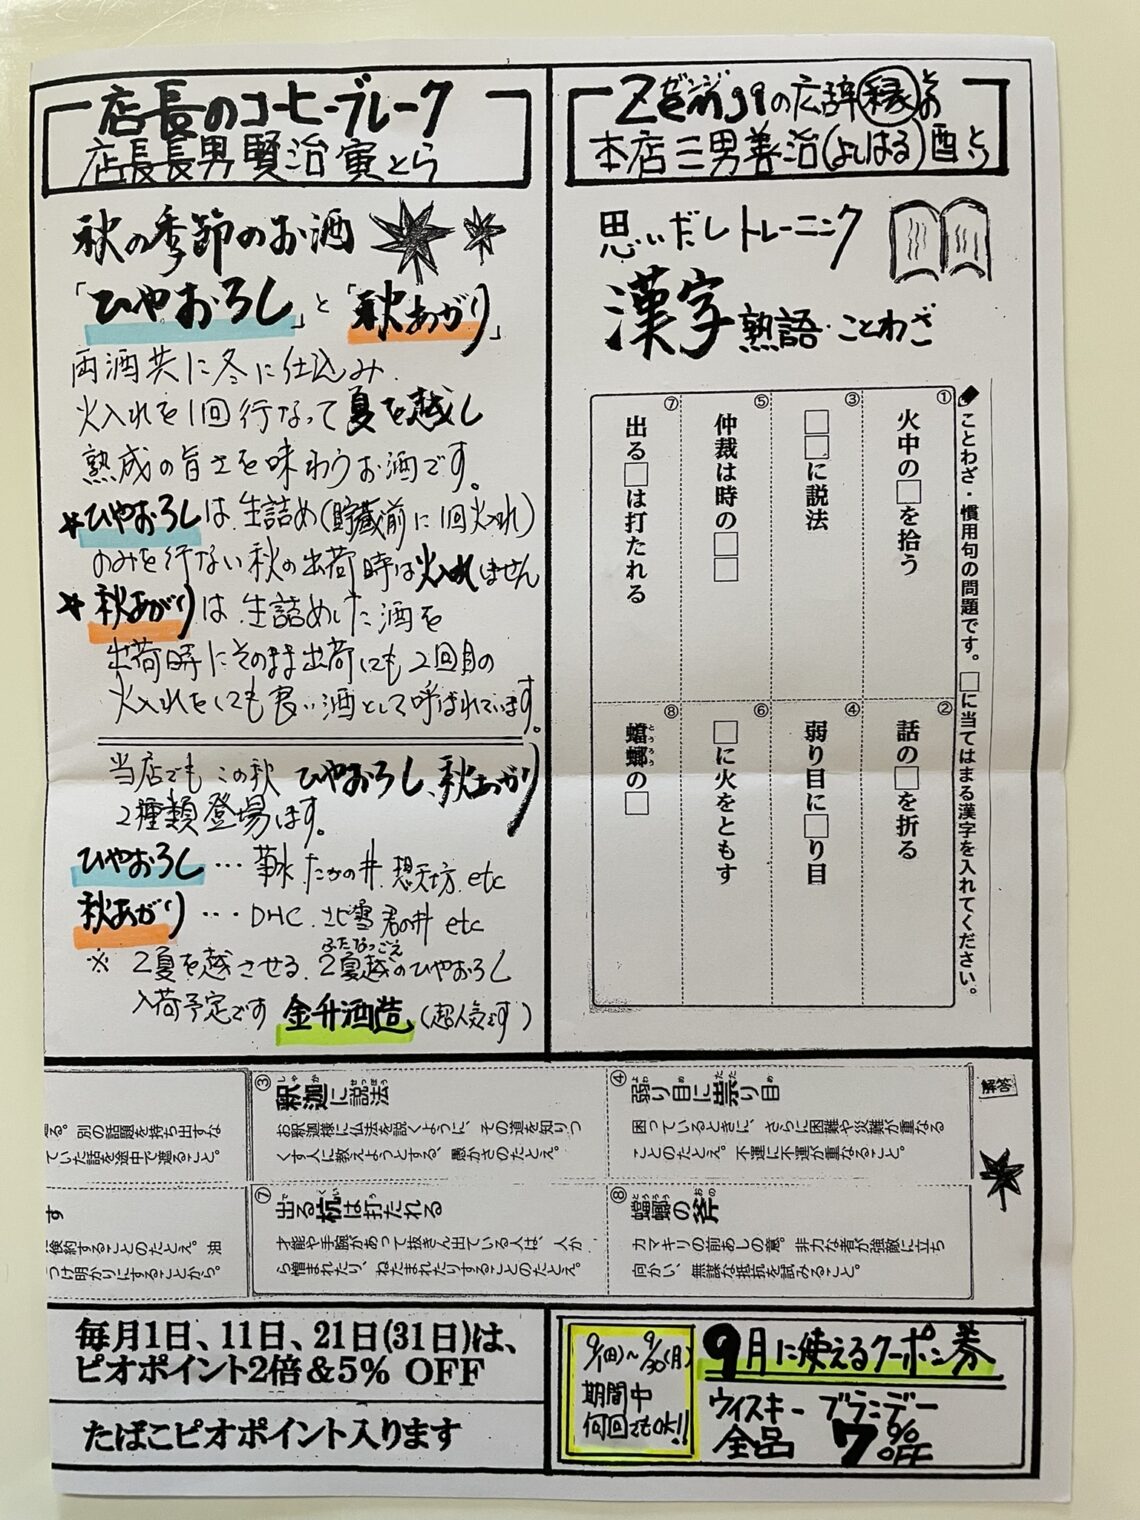 店長のコーヒーブレーク
店長長男 賢治 寅とら
秋の季節のお酒
「ひやおろし」と「秋あがり」
両酒共に冬に仕込み
火入れを1回行なって夏を越し
熟成の旨さを味わうお酒です。
★ひやおろしは生詰め(貯蔵前に1回火入れ)
のみを行ない秋の出荷時は火入れしません
★秋あがりは生詰めした酒を
出荷時にそのまま出荷にても2回目の
火入れをしても良い酒として呼ばれています。
当店でもこの秋 ひやおろし、秋あがり
2種類登場します。
ひやおろし…華水 たかの井.想天坊.etc
秋あがり…DHC. 雪 君の井 etc
※ 2夏を越させる.2夏越のひやおろし
ふたなつごえ
入荷予定です 金升酒造 (超人気です)
Zenjiの広辞縁とお
ゼンジ
本店三男善治(よしはる)酉とり
思いだしトレーニング
漢字熟語・ことわざ
ことわざ・慣用句の問題です。□に当てはまる漢字を入れてください。
①火中の□を拾う
②話の□を折る
③□□に説法
④弱り目に□り目
⑤仲裁は時の□□
⑥□に火をともす
⑦出る□は打たれる
⑧蟷螂の□
とうろう
解答
③釈迦に説法
しゃか せっぽう
お釈迦様に仏法を説くように、その道を知りつ
くす人に教えようとする、愚かさのたとえ。
④弱り目に祟り目
よわ め たた め
困っているときに、さらに困難や災難が重なる
ことのたとえ。不運に不運が重なること。
る。別の話題を持ち出すな
ていた話を途中で遮ること。
⑦出る杭は打たれる
で くい う
才能や手腕があって抜きん出ている人は、人か
ら憎まれたり、ねたまれたりすることのたとえ。
⑧蟷螂の斧
とうろう おの
カマキリの前あしの意。非力な者が強敵に立ち
向かい、無謀な抵抗を試みること。
す
倹約することのたとえ。油
つけ明かりにすることから。
毎月1日、11日、21日(31日)は、
ピオポイント2倍＆5% OFF
たばこピオポイント入ります
9/1(日)～9/30(月)
期間中
何回でもOK!!
9月に使えるクーポン券
ウイスキー ブランデー
全品 7% OFF